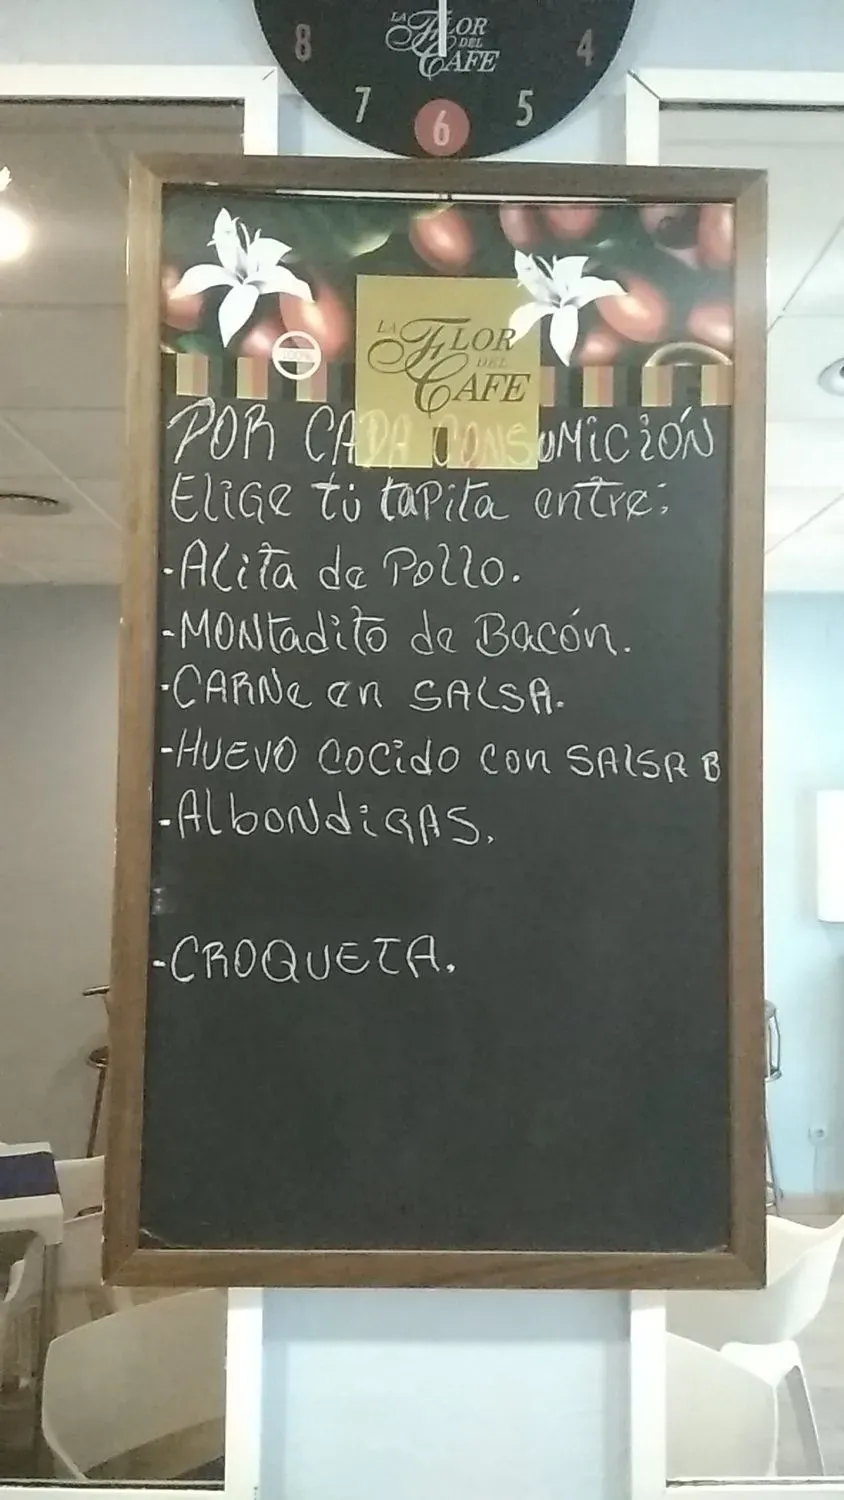 LA FLOR
DEL
CAFE
8
4
7
5
6
100%
LA FLOR
DEL
CAFE
POR CADA CONSUMICIÓN
Elige tú tapita entre:
-Alita de Pollo.
-MONtadito de Bacón.
-CARNe en SALSA.
-HUEVO COCido con SALSA B
-AlbONdiGAS.
-CROQUETA.